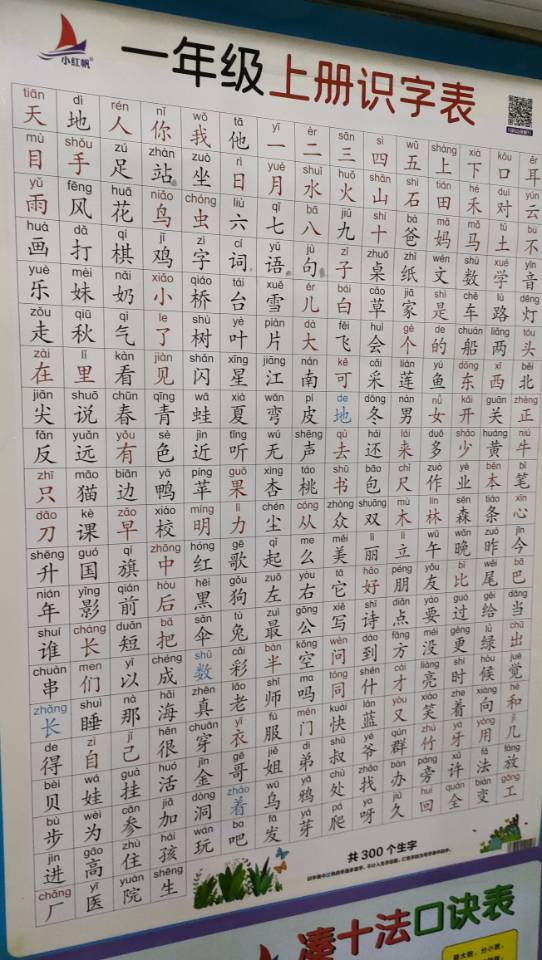 小红帆
一年级上册识字表
tiān dì rén nǐ wǒ tā yī èr sān sì wǔ shàng xià kǒu ěr
天地人你我他一二三四五上下口耳
mù shǒu zú zhàn zuò rì yuè shuǐ huǒ shān shí tián hé duì yún
目手足站坐日月水火山石田禾对云
yǔ fēng huā niǎo chóng liù qī bā jiǔ shí bà mā mǎ tǔ bù
雨风花鸟虫六七八九十爸妈马土不
huà dǎ qí jī zì cí yǔ jù zǐ zhuō zhǐ wén shù xué yīn
画打棋鸡字词语句子桌纸文数学音
yuè mèi nǎi xiǎo qiáo tái xuě ér bái cǎo jiā shì chē lù dēng
乐妹奶小桥台雪儿白草家是车路灯
zǒu qiū qì le shù yè piàn dà fēi huì gè de chuán liǎng tóu
走秋气了树叶片大飞会个的船两头
zài lǐ kàn jiàn shǎn xīng jiāng nán kě cǎi lián yú dōng xī běi
在里看见闪星江南可采莲鱼东西北
jiān shuō chūn qīng wā xià wān pí de dōng nán nǚ kāi guān zhèng
尖说春青蛙夏弯皮地冬男女开关正
fǎn yuǎn yǒu sè jìn tīng wú shēng qù hái lái duō shǎo huáng niú
反远有色近听无声去还来多少黄牛
zhī māo biān yā píng guǒ xìng táo shū bāo chǐ zuò yè běn bǐ
只猫边鸭苹果杏桃书包尺作业本笔
dāo kè zǎo xiào míng lì chén cóng zhòng shuāng mù lín sēn tiáo xīn
刀课早校明力尘从众双木林森条心
shēng guó qí zhōng hóng gē qǐ me měi lì lì wǔ wǎn zuó jīn
升国旗中红歌起么美丽立午晚昨今
nián yǐng qián hòu hēi gǒu zuǒ yòu tā hǎo péng yǒu bǐ wěi bā
年影前后黑狗左右它好朋友比尾巴
shuí cháng duǎn bǎ sǎn tù zuì gōng xiě shī diǎn yào guò gěi dāng
谁长短把伞兔最公写诗点要过给当
chuàn men yǐ chéng shǔ cǎi bàn kōng wèn dào fāng méi gèng lǜ chū
串们以成数彩半空问到方没更绿出
zhǎng shuì nà hǎi zhēn lǎo shī ma tóng shén cái liàng shí hòu jué
长睡那海真老师吗同什才亮时候觉
de zì jǐ hěn chuān yī fú mén kuài lán yòu xiào zhe xiàng hé
得自己很穿衣服门快蓝又笑着向和
bèi wá guà huó jīn gē jiě dì shū yé qún zhú yá yòng jǐ
贝娃挂活金哥姐弟叔爷群竹牙用几
bù wèi cān jiā dòng zháo wū yā chù zhǎo bàn páng xǔ fǎ fàng
步为参加洞着乌鸦处找办旁许法放
jìn gāo zhù hái wán ba fā yá pá ya jiǔ huí quán biàn gōng
进高住孩玩吧发芽爬呀久回全变工
chǎng yī yuàn shēng
厂医院生
共300个生字
凑十法口诀表